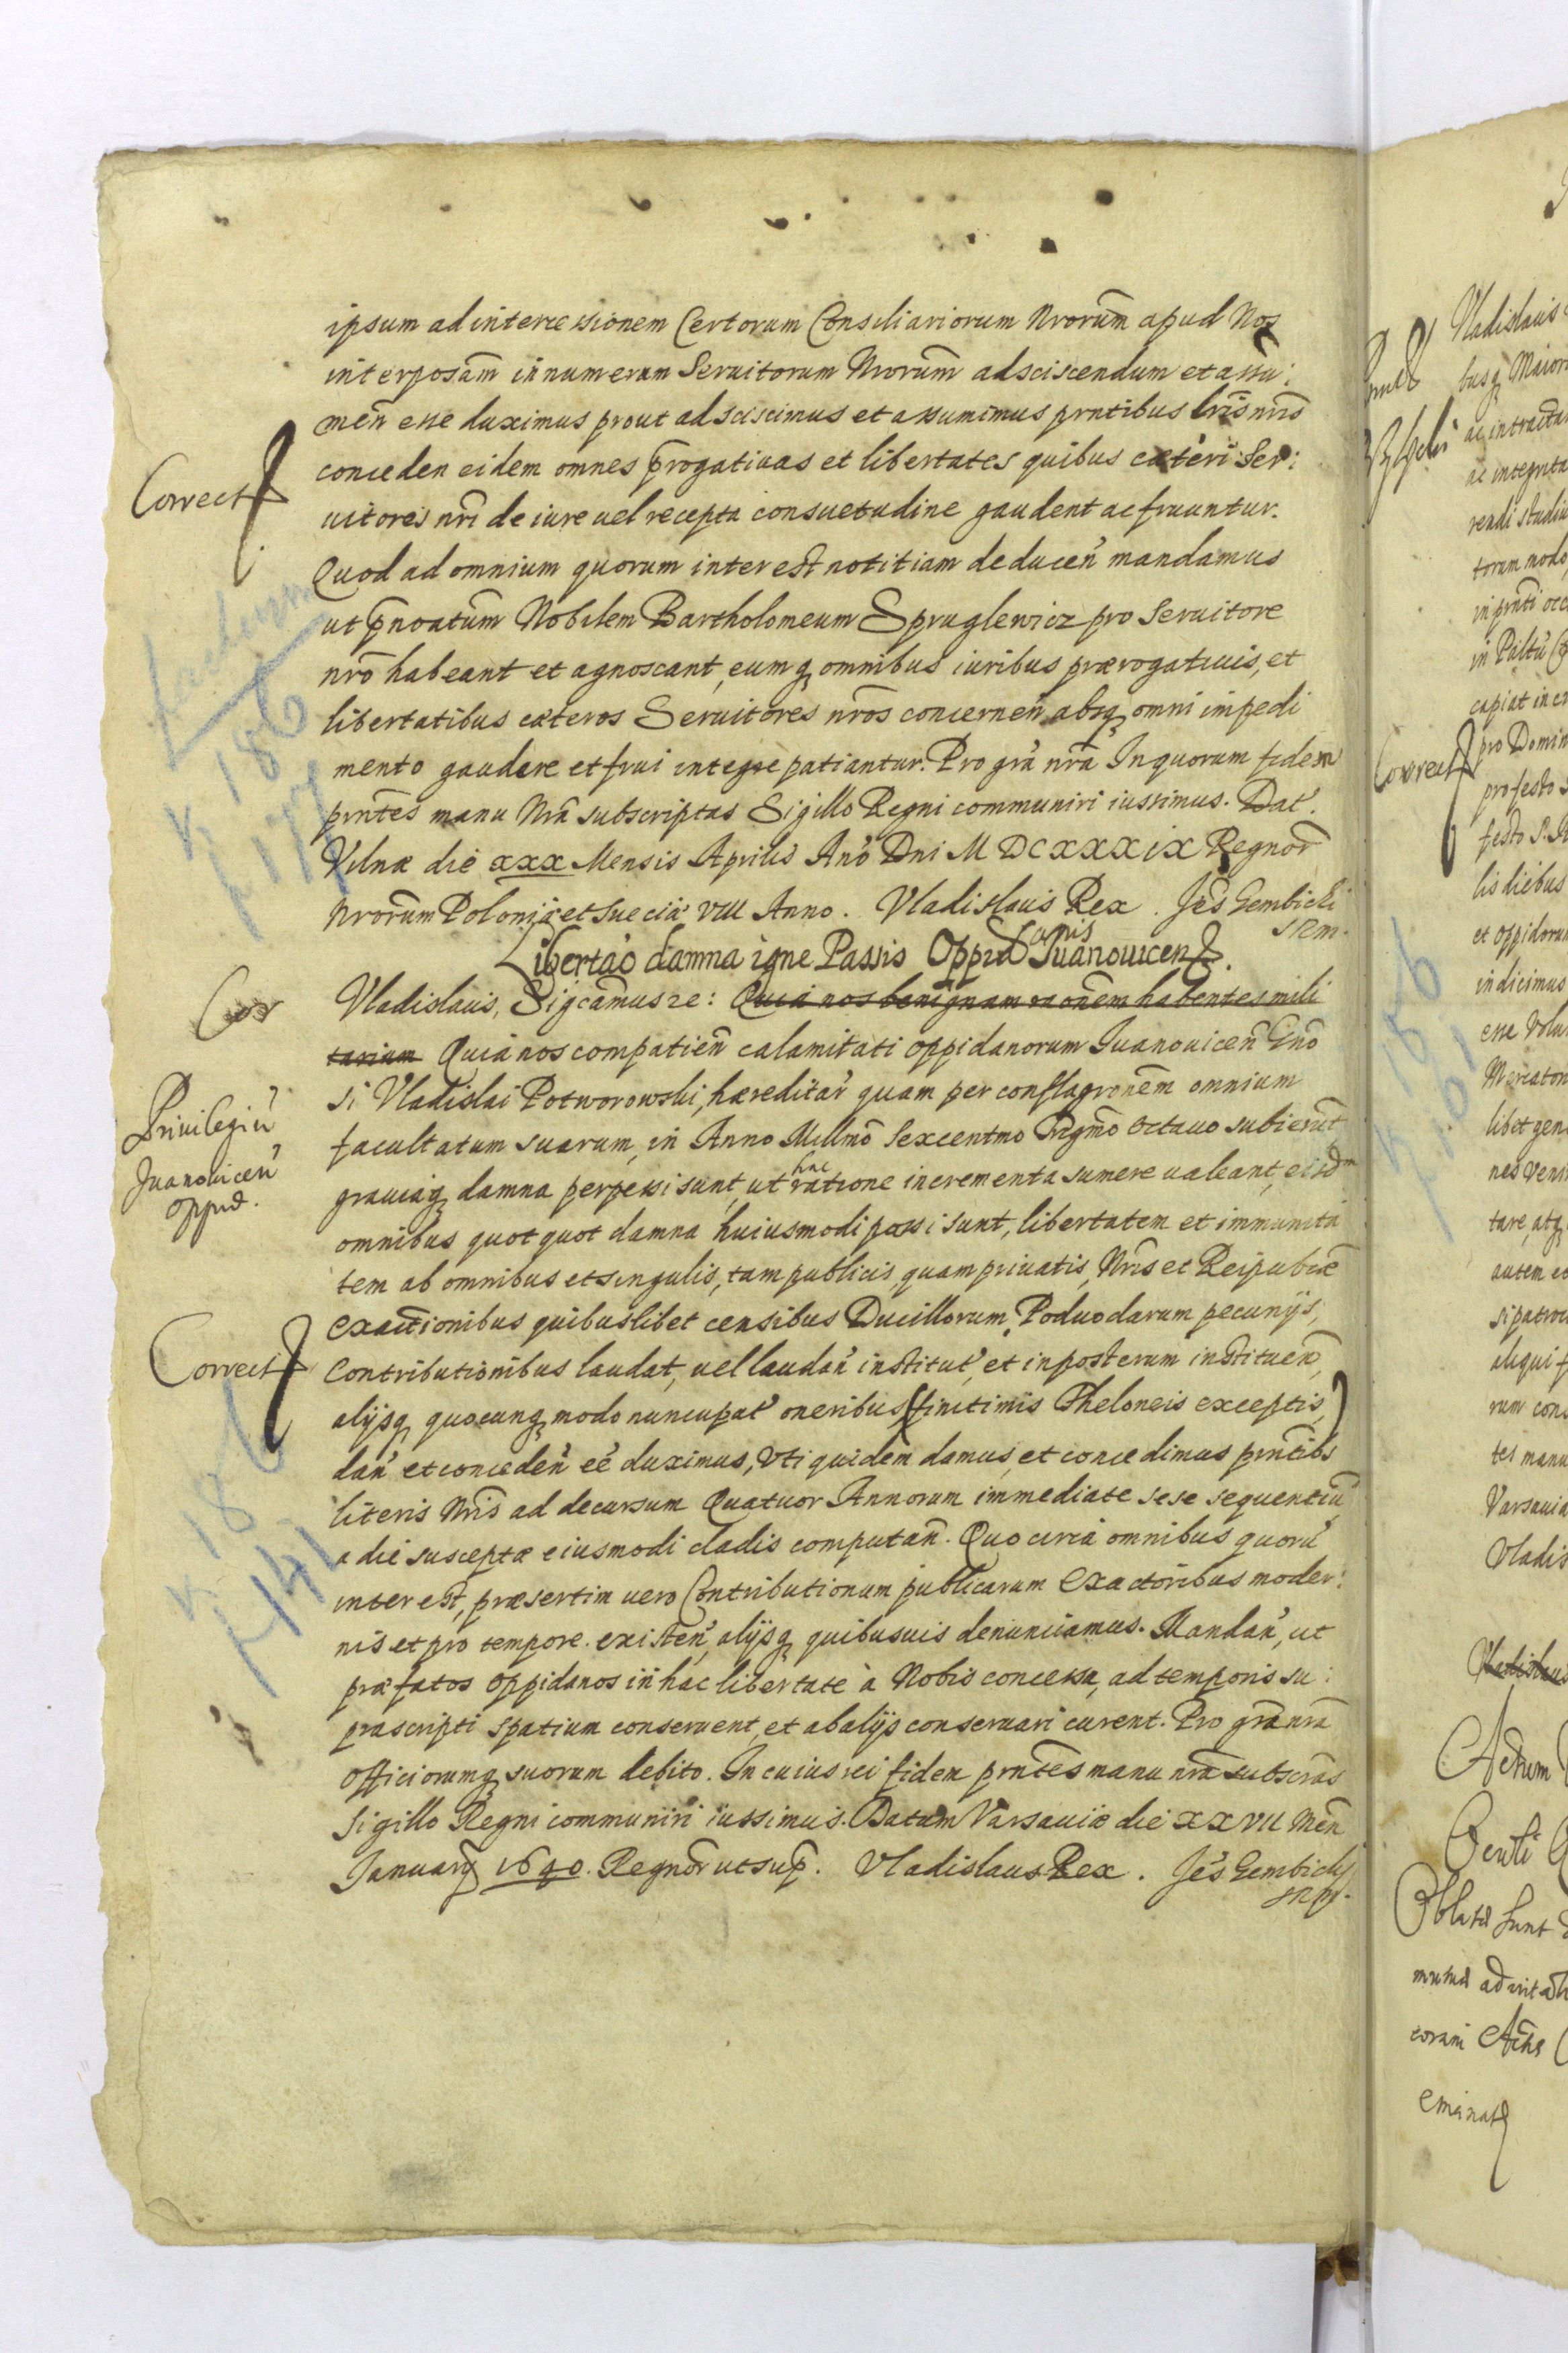 ipsum ad intercessionem Certorum Consiliariorum Nrorum apud Nos
interposam in numerum Seruitorum Nrorum adsciscendum et assu:
men esse duximus prout adsciscimus et assumimus prntibus lris nris
conceden eidem omnes progatiuas et libertates quibus cæteri Ser:
uitores nri de iure uel recepta consuetudine gaudent ac fruuntur.
Quod ad omnium quorum interest notitiam deducen mandamus
ut pnoatum Nobilem Bartholomeum Spruglewicz pro Seruitore
nro habeant et agnoscant, eumq omnibus iuribus prærogatiuis, et
libertatibus cæteros Seruitores nros concernen absq omni impedi
mento gaudere et frui integre patiantur. Pro gra nra In quorum fidem
prntes manu Nra subscriptas Sigillo Regni communiri iussimus. Dat.
Vilnæ die xxx Mensis Aprilis Ano Dni M DC XXX ix Regnor
Nrorum Poloniæ et Sueciæ VIII Anno. Vladislaus Rex. Jes Gembicki
SRM.
Libertao damna igne Passis Oppidanis Juanouicen.
Vladislaus, Sigcamus re: Quia nos benignam raonem habentes mili
tarium Quia nos compatien calamitati oppidanorum Juanouicen Gno
si Vladislai Potworowski, hæreditar quam per conflagronem omnium
facultatum suarum, in Anno Millmo Sexcentmo Trigmo octauo subierunt
grauiaq damna perpessi sunt, ut hac ratione incrementa sumere ualeant, eisdm
omnibus quotquot damna huiusmodi passi sunt, libertatem et immunita
tem ab omnibus et singulis, tam publicis, quam priuatis, Nris et Reipublicæ
exactionibus quibuslibet censibus Ducillorum, Poduodarum pecunijs,
Contributionibus laudat, uel laudan institut, et in posterum instituen,
alijsq quocunq modo nuncupat oneribus (finitimis Theloneis exceptis)
dan et conceden ee duximus, Uti quidem damus, et concedimus prntibs
literis Nris ad decursum Quatuor Annorum immediate sese sequentiu
a die susceptæ eiusmodi cladis computan. Quocirca omnibus quoru
interest, præsertim uero Contributionum publicarum Exactoribus moder:
nis et pro tempore existen, alijsq quibusuis denunciamus. Mandan, ut
præfatos oppidanos in hac libertate à Nobis concessa, ad temporis su:
prascripti spatium conseruent, et ab alijs conseruari curent. Pro gra nra
officiorumq suorum debito. In cuius rei fidem prntes manu nra subscras
Sigillo Regni communiri iussimus. Datum Varsauiæ die XXVII Men
Januarij 1640. Regnor ut sup. Vladislaus Rex. Jes Gembicky
SRM.
Correct
Cor
Priuilegiu
Juanouicen
oppid.
Correct
K 186
f 177
K 186
f 141
Vladislaus
busq Maior
ac integrita
rendi studiu
torum modo
capiat in
Correct
pro Domin
pro festo S
lis diebus
et oppidorum
indicimus
esse Volu
Mercator
libet gen
nes Veni
tare, atq
autem et
si patroc
aliqui f
rum cons
tes manu
Varsauia
Vladis
Vladislaus
Actum
Oblatæ sunt
coram Actis